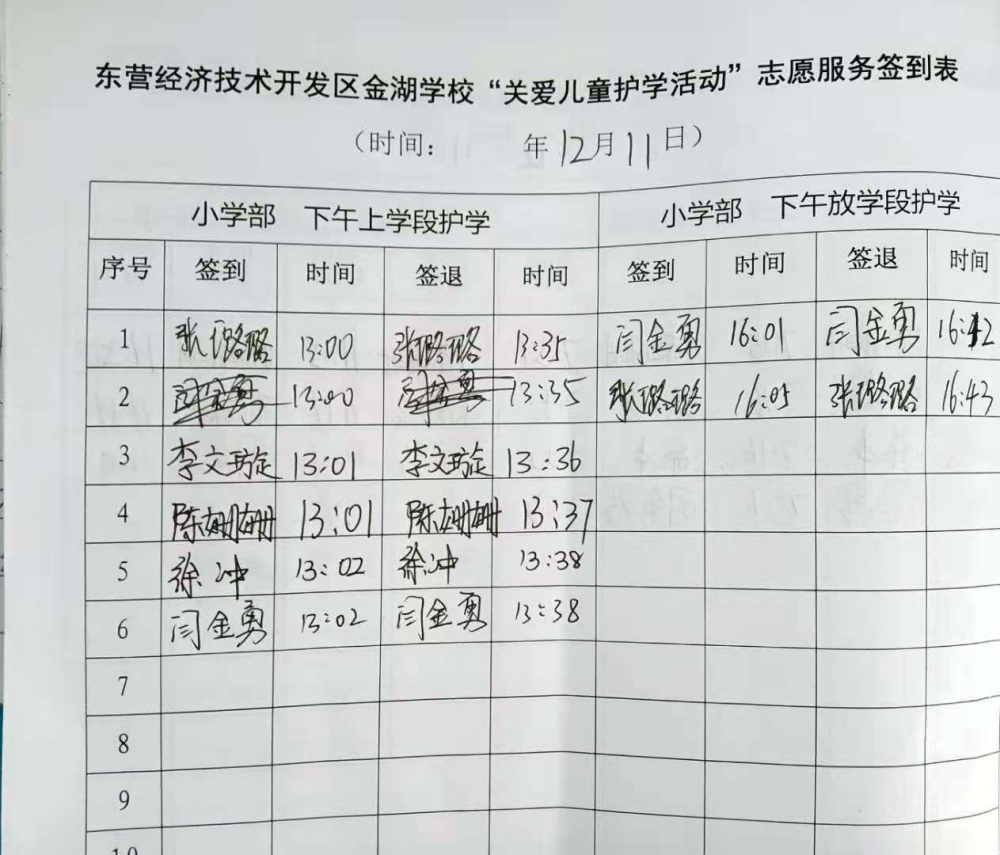 东营经济技术开发区金湖学校“关爱儿童护学活动”志愿服务签到表
（时间： 年12月11日）
小学部 下午上学段护学 小学部 下午放学段护学
序号 签到 时间 签退 时间 签到 时间 签退 时间
1 张璐璐 13:00 张璐璐 13:35 闫金勇 16:01 闫金勇 16:42
2 13:00 13:35 张璐璐 16:05 张璐璐 16:43
3 李文璇 13:01 李文璇 13:36
4 陈姗姗 13:01 陈姗姗 13:37
5 徐冲 13:02 徐冲 13:38
6 闫金勇 13:02 闫金勇 13:38
7
8
9
10